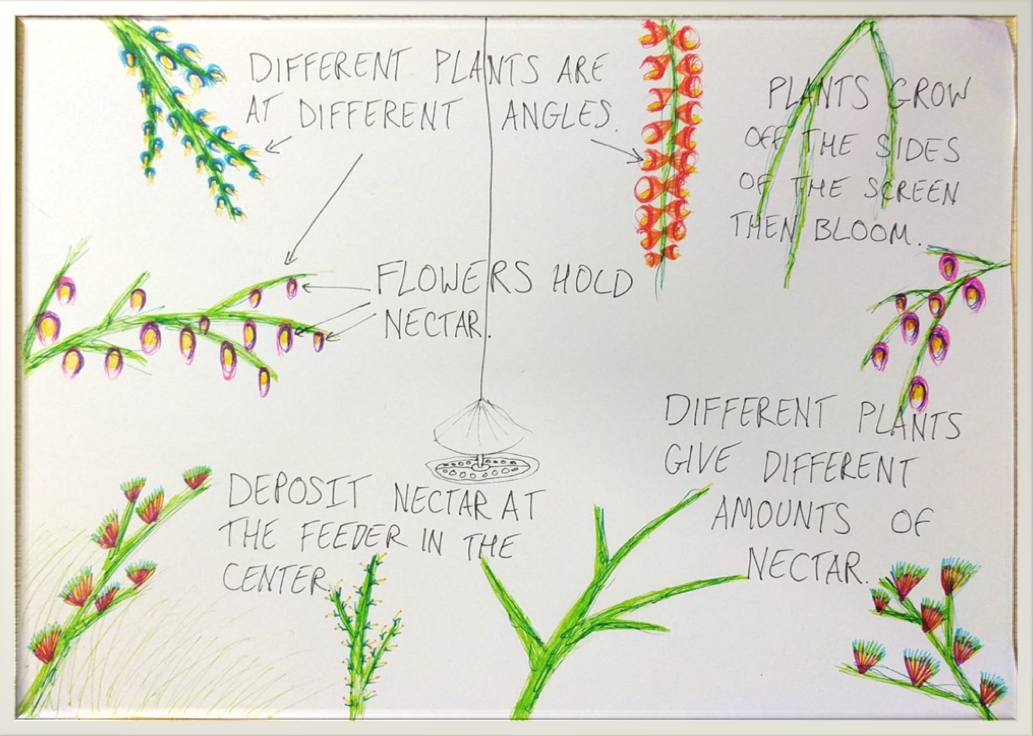 DIFFERENT PLANTS ARE
AT DIFFERENT ANGLES.
PLANTS GROW
OFF THE SIDES
OF THE SCREEN
THEN BLOOM.
FLOWERS HOLD
NECTAR.
DIFFERENT PLANTS
GIVE DIFFERENT
AMOUNTS OF
NECTAR.
DEPOSIT NECTAR AT
THE FEEDER IN THE
CENTER.